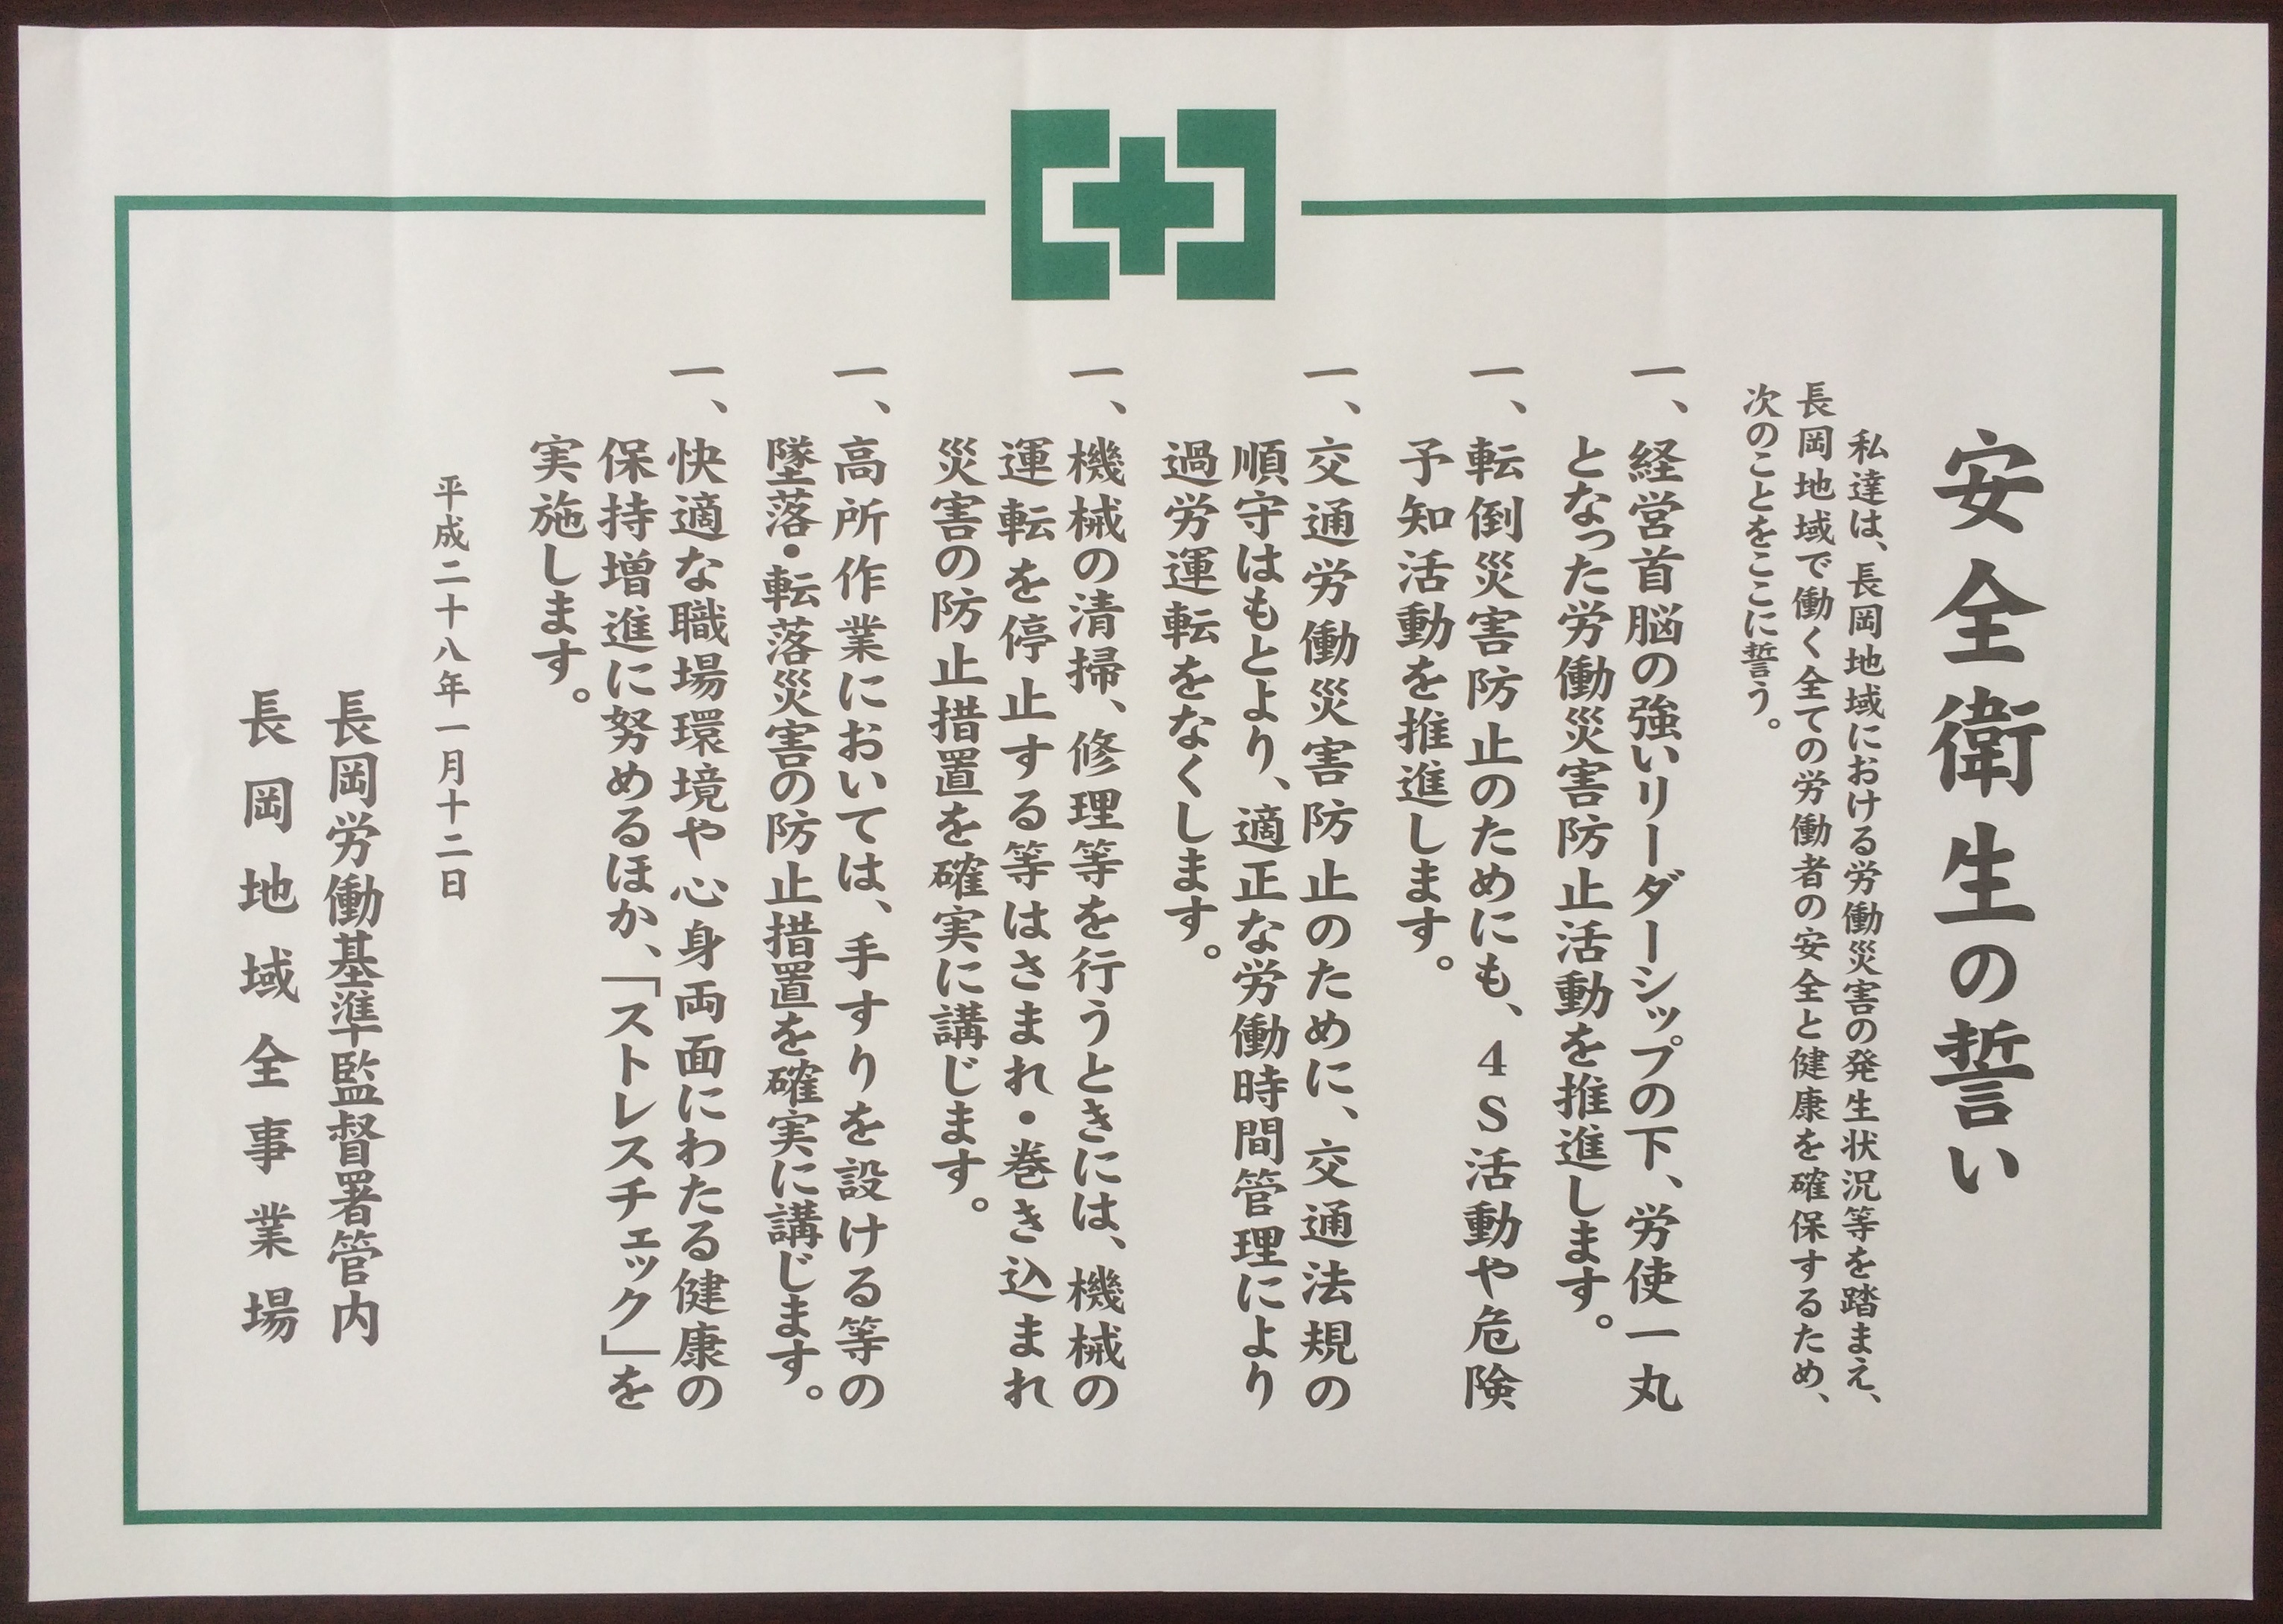 安全衛生の誓い
私達は、長岡地域における労働災害の発生状況等を踏まえ、
長岡地域で働く全ての労働者の安全と健康を確保するため、
次のことをここに誓う。
一、経営首脳の強いリーダーシップの下、労使一丸
となった労働災害防止活動を推進します。
一、転倒災害防止のためにも、４Ｓ活動や危険
予知活動を推進します。
一、交通労働災害防止のために、交通法規の
順守はもとより、適正な労働時間管理により
過労運転をなくします。
一、機械の清掃、修理等を行うときには、機械の
運転を停止する等はさまれ・巻き込まれ
災害の防止措置を確実に講じます。
一、高所作業においては、手すりを設ける等の
墜落・転落災害の防止措置を確実に講じます。
一、快適な職場環境や心身両面にわたる健康の
保持増進に努めるほか、「ストレスチェック」を
実施します。
平成二十八年一月十二日
長岡労働基準監督署管内
長岡地域全事業場